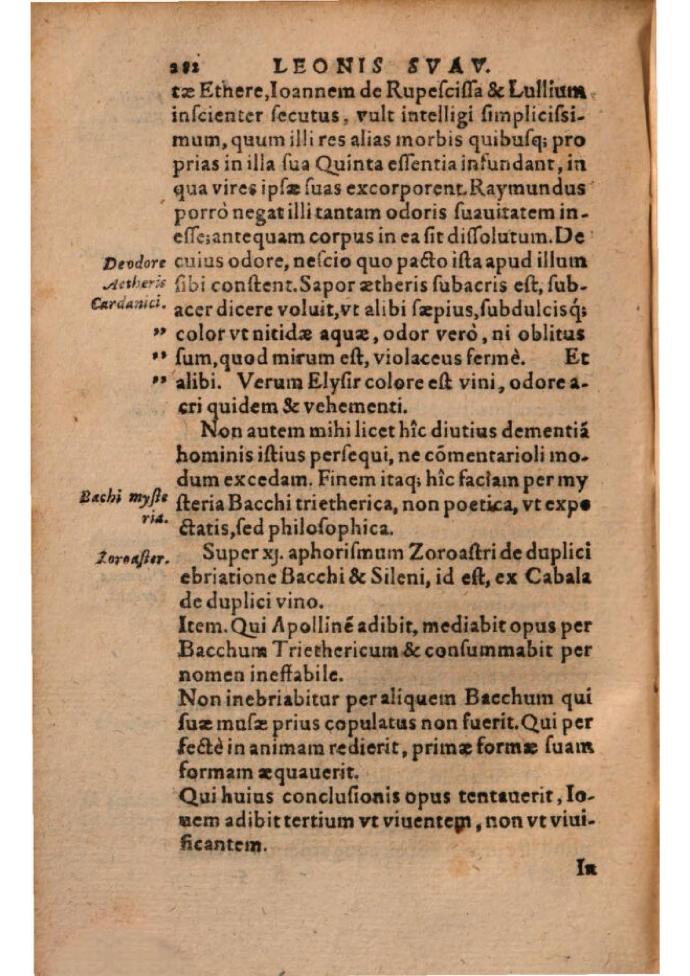 282 LEONIS SVAV.
tæ Ethere,Ioannem de Rupeſciſſa & Lullium
inſcienter ſecutus, vult intelligi ſimpliciſsi-
mum, quum illi res alias morbis quibuſq; pro
prias in illa ſua Quinta eſſentia infundant, in
qua vires ipſæ ſuas excorporent. Raymundus
porrò negat illi tantam odoris ſuauitatem in-
eſſe;antequam corpus in ea ſit diſſolutum. De
Deodore
Aetheris
Cardanici.
cuius odore, neſcio quo pacto iſta apud illum
ſibi conſtent. Sapor ætheris ſubacris eſt, ſub-
acer dicere voluit,vt alibi ſæpius,ſubdulciſq́;
” color vt nitidæ aquæ, odor verò, ni oblitus
” ſum,quod mirum eſt, violaceus fermè. Et
” alibi. Verum Elyſir colore eſt vini, odore a-
cri quidem & vehementi.
Non autem mihi licet hîc diutius dementiā
hominis iſtius perſequi, ne cōmentarioli mo-
dum excedam. Finem itaq; hîc faciam per my
Bachi myſte
ria.
ſteria Bacchi trietherica, non poetica, vt expe
ctatis,ſed philoſophica.
Zoroaſter.
Super xj. aphoriſmum Zoroaſtri de duplici
ebriatione Bacchi & Sileni, id eſt, ex Cabala
de duplici vino.
Item. Qui Apollinē adibit, mediabit opus per
Bacchum Triethericum & conſummabit per
nomen ineffabile.
Non inebriabitur per aliquem Bacchum qui
ſuæ muſæ prius copulatus non fuerit. Qui per
fectè in animam redierit, primæ formæ ſuam
formam æquauerit.
Qui huius concluſionis opus tentauerit, Io-
uem adibit tertium vt viuentem, non vt viui-
ficantem.
In